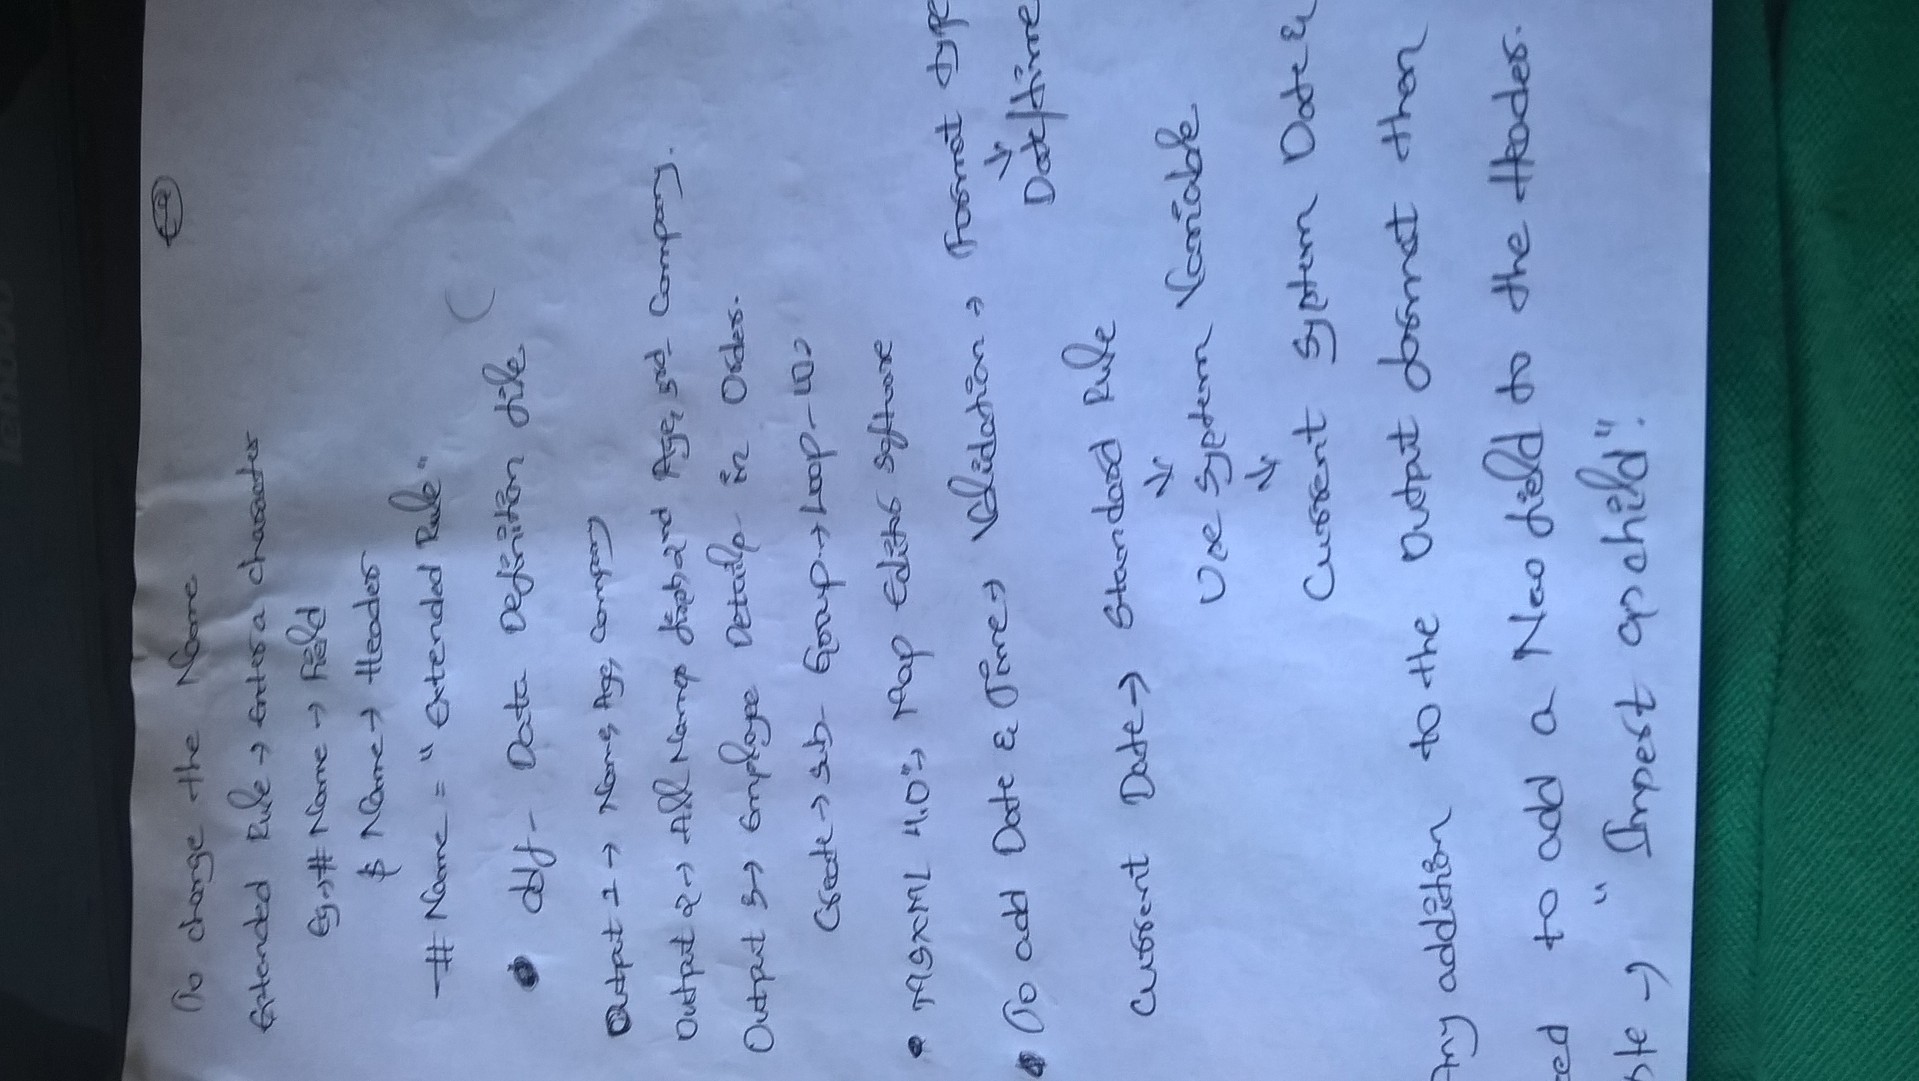 To change the Name
Extended Rule → Enter a character
Eg → # Name → Field
$ Name → Header
# Name = " Extended Rule"
ddf - Data Definition file
Output 1 → Name, Age, Company
Output 2 → All Names first, 2nd Age, 3rd Company.
Output 3 → Employee Details in Order.
Create → Sub-Group → Loop-10
MSXML 4.0 → Map Editor Software
To add Date & Time → Validation → Format type
↓
Date/time
Current Date → Standard Rule
↓
Use System Variable
↓
Current System Date &
Any addition to the Output format then
to add a New field to the Header.
→ " Import as child".